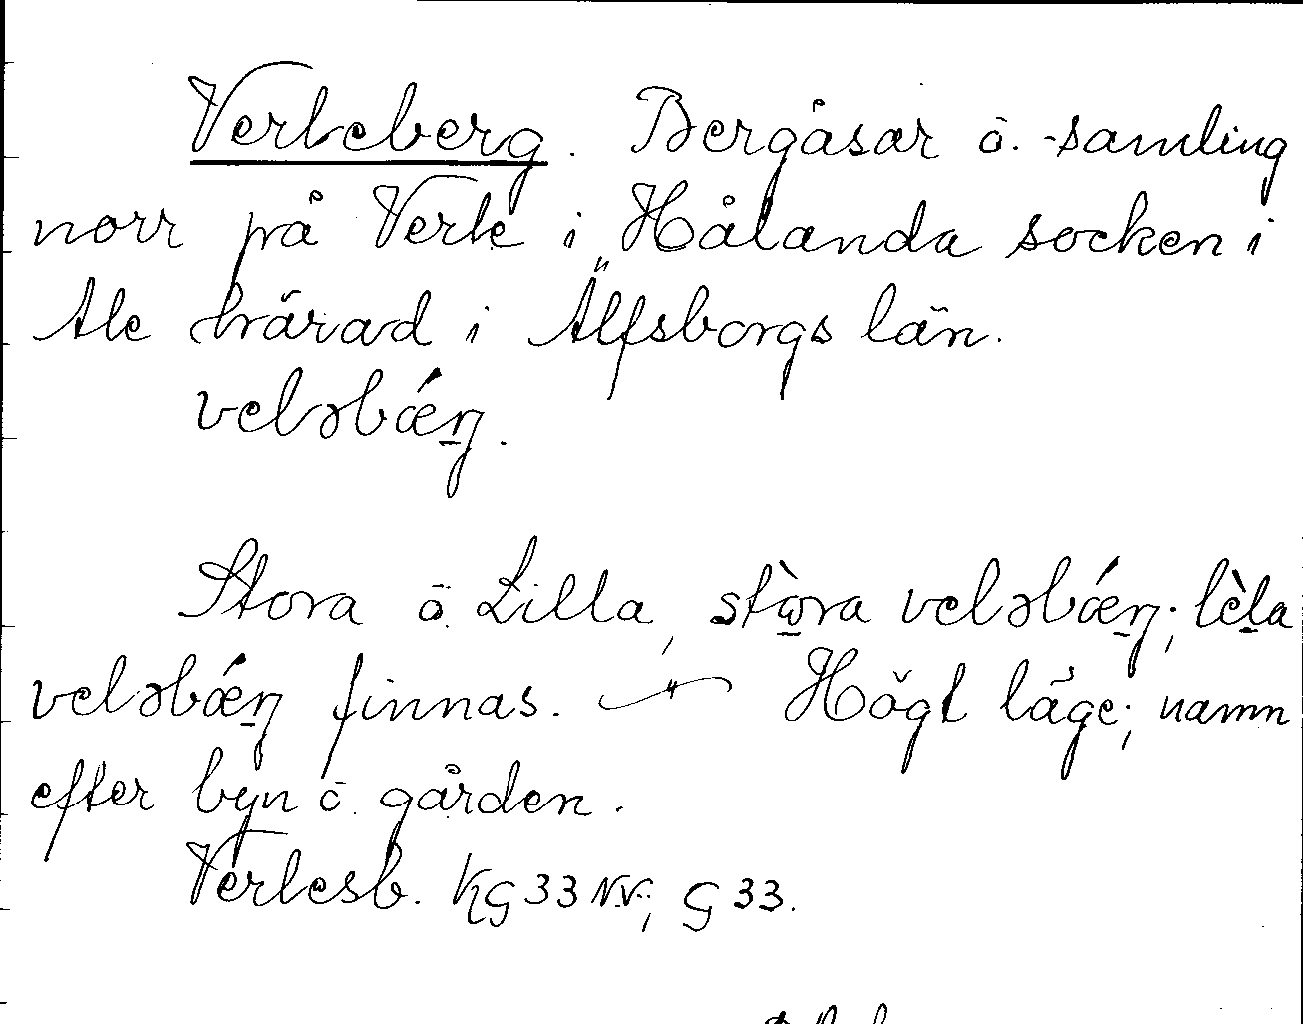 Verleberg. Bergåsar ö. -samling
norr på Verle i Hålanda socken i
Ale härad i Älfsborgs län.
veləbǽrj.
Stora ö. Lilla, stòra veləbǽrj; lèla
veləbǽrj finnas. — Högt läge; namn
efter byn ö. gården.
Verlesb. KG 33 NV; G 33.